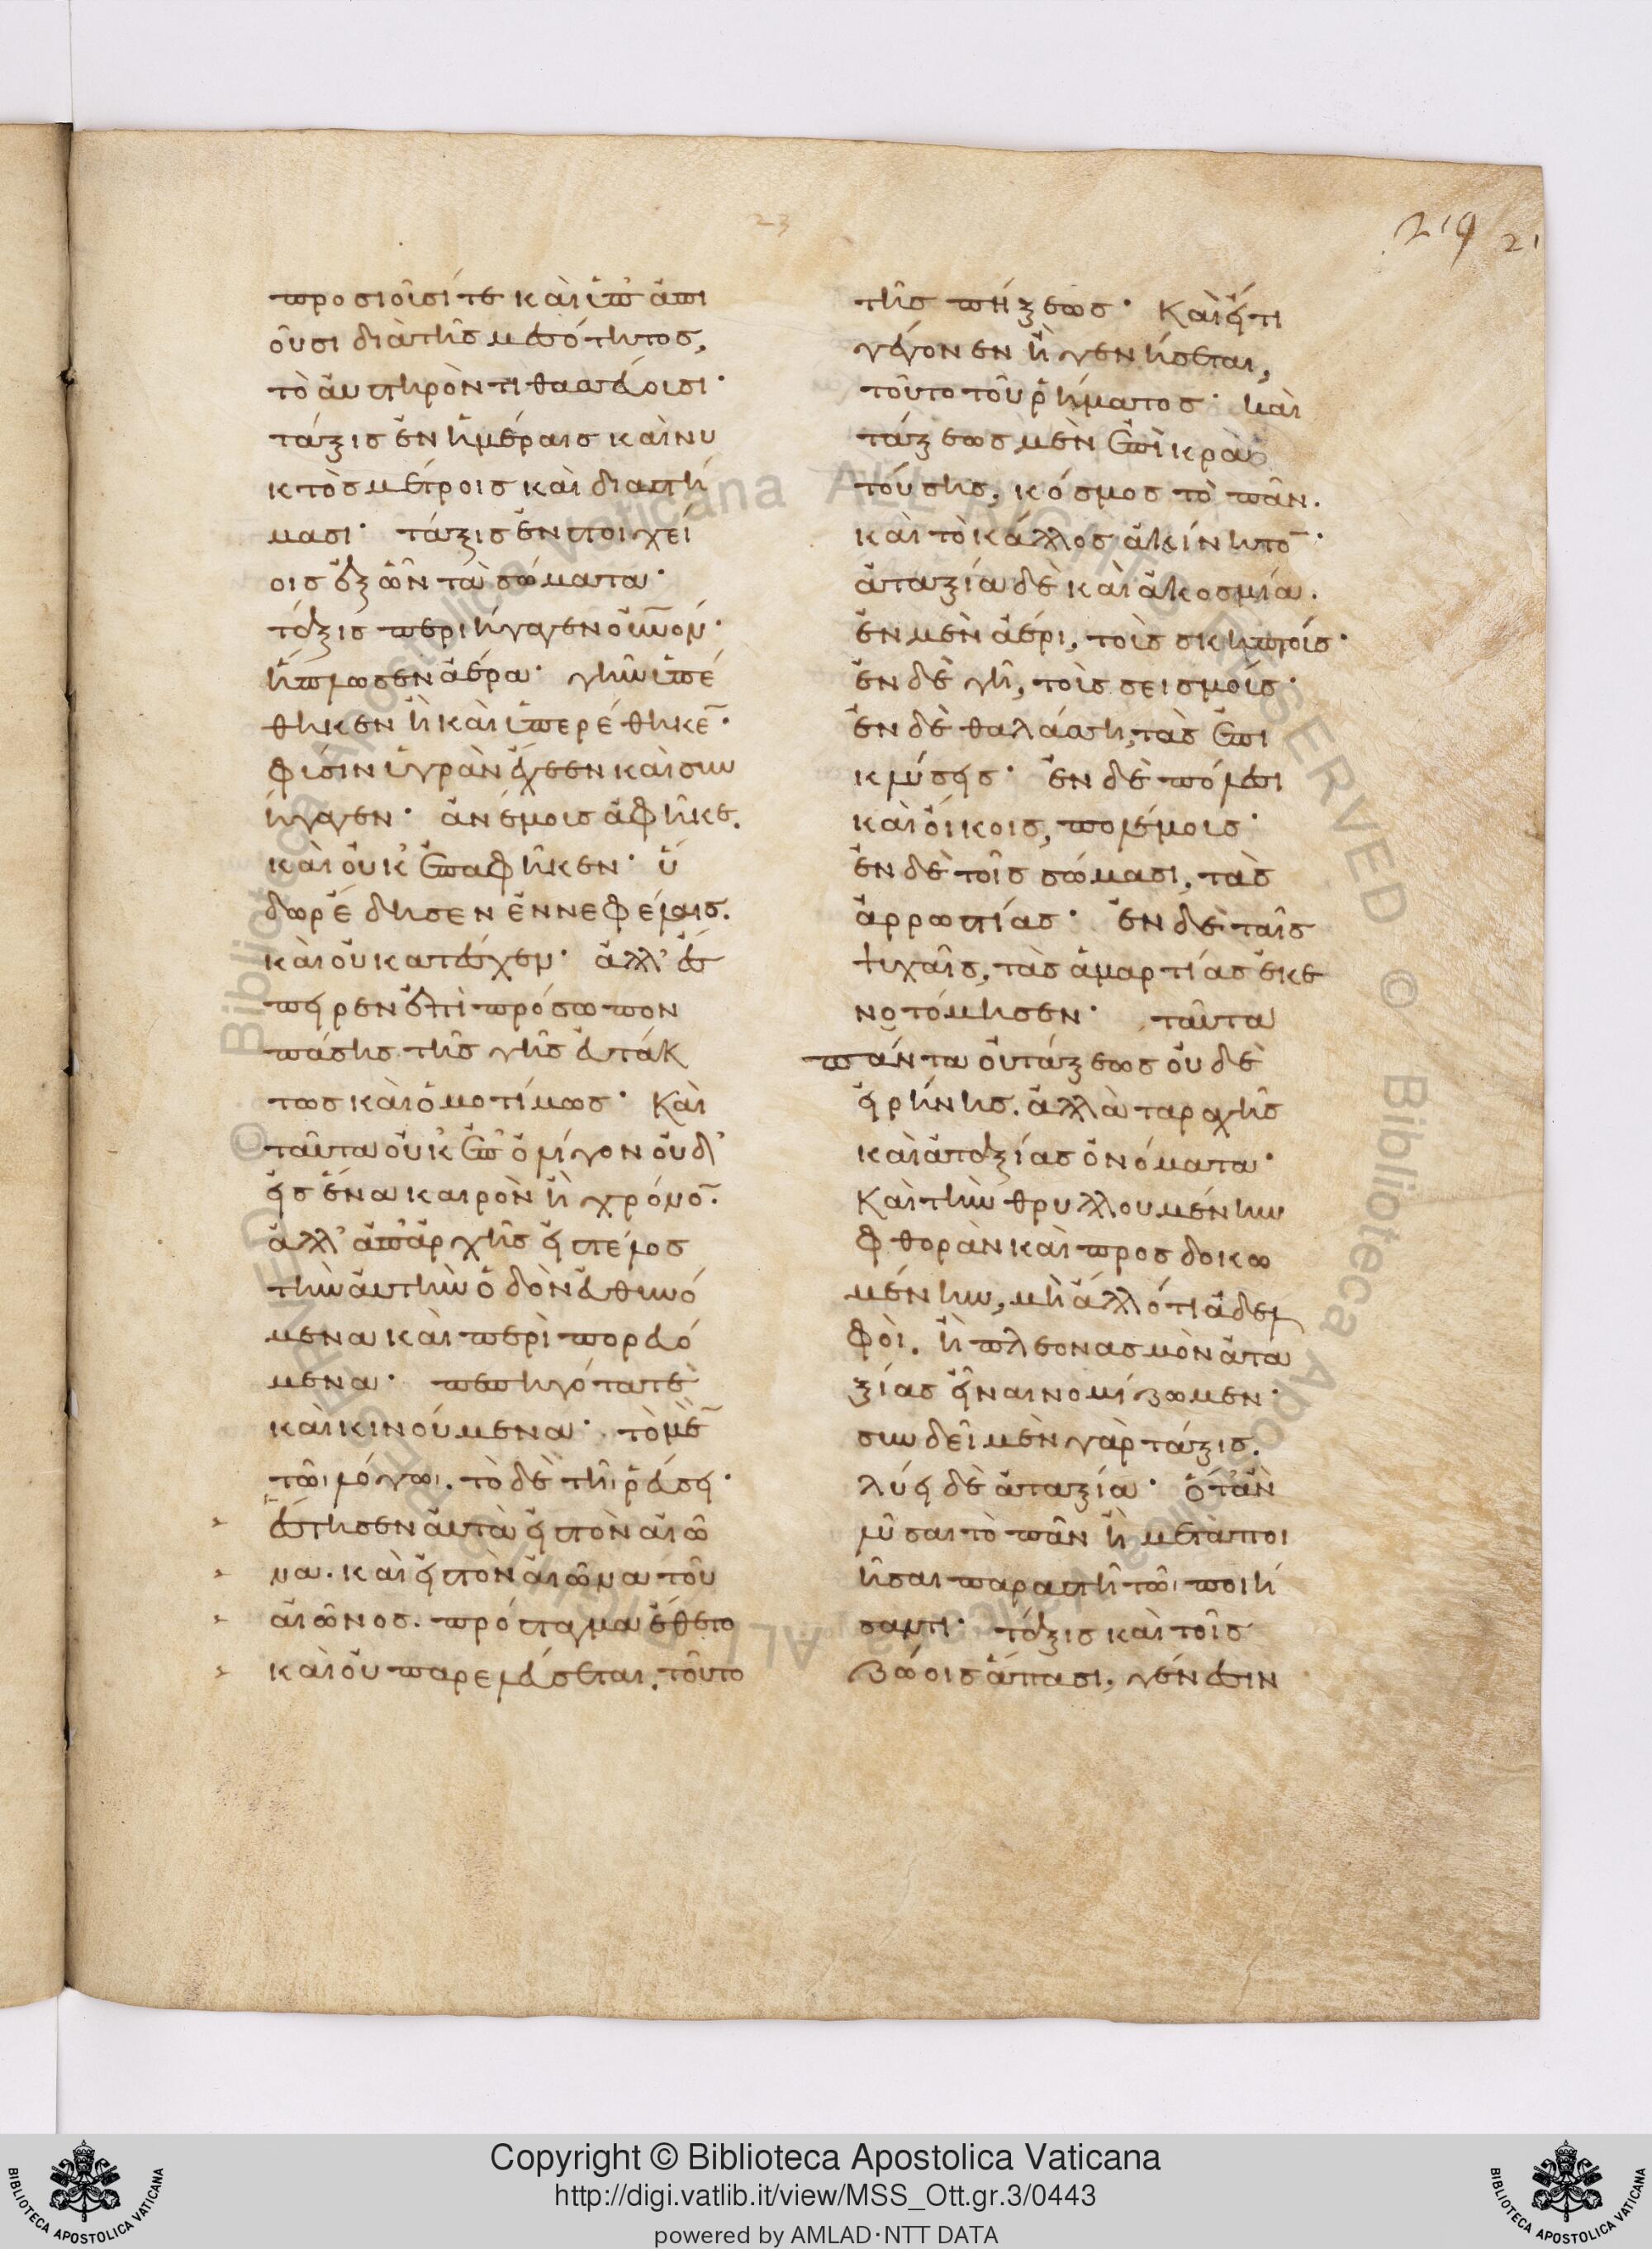 23
219 21
προσιοῦσί τε καὶ ὑπἀπι
οῦσι διὰ τῆς μεσότητος,
τὸ αὐστηρὸν τιθασσεύουσι·
τάξις ἐν ἡμέραις καὶ νυ
κτὸς μέτροις καὶ διαστή
μασι· τάξις ἐν στοιχεί
οις ἐξ ὧν τὰ σώματα·
τάξις περιήγαγεν οὐνόν·
ἥπλωσεν ἀέρα· γῆν ὑπέ
θηκεν ἢ καὶ ὑπερέθηκε̅·
φύσιν ὑγρὰν ἔχεεν καὶ συν
ήγαγεν· ἀνέμοις ἀφῆκε.
καὶ οὐκ ἐπαφῆκεν· ὕ
δωρ ἔδησεν ἐν νεφέλαις.
καὶ οὐ κατέσχεν· ἀλλ' ἔσ
πειρεν ἐπὶ πρόσωπον
πάσης τῆς γῆς εὐτάκ
τως καὶ ὁμοτίμως· Καὶ
ταῦτα οὐκ ἐπ' ὀλίγον οὐδ'
εἰς ἕνα καιρὸν ἢ χρόνο̅·
ἀλλ' ἀπ' ἀρχῆς εἰς τέλος
τὴν αὐτὴν ὁδὸν εὐθυνό
μενα καὶ περιπορευό
μενα· πεπηγότα τὲ
καὶ κινούμενα· τὸ μὲ̅
τῶι λόγωι. τὸ δὲ τῆι ῥεύσει·
ἔστησεν αὐτὰ εἰς τὸν αἰῶ
να. καὶ εἰς τὸν αἰῶνα τοῦ
αἰῶνος. πρόσταγμα ἔθετο
καὶ οὐ παρελεύσεται. τοῦτο
τῆς πήξεως· Καὶ εἴ τι
γέγονεν ἢ γενήσεται,
τοῦτο τοῦ ῥήματος· καὶ
τάξεως μὲν ἐπικρα
τούσης, κόσμος τὸ πᾶν.
καὶ τὸ κάλλος ἀκίνητο̅·
ἀταξία δὲ καὶ ἀκοσμία.
ἐν μὲν ἀέρι, τοὺς σκηπτούς·
ἐν δὲ γῆ, τοὺς σεισμούς·
ἐν δὲ θαλάσση, τὰς ἐπι
κλύσεις· ἐν δὲ πόλεσι
καὶ οἴκοις, πολέμοις·
ἐν δὲ τοῖς σώμασι, τὰς
ἀρρωστίας· ἐν δὲ ταῖς
ψυχαῖς, τὰς ἁμαρτίας ἐκε
νοτόμησεν· ταῦτα
πάντα οὐ τάξεως οὐδὲ
εἰρήνης. ἀλλὰ ταραχῆς
καὶ ἀταξίας ὀνόματα·
Καὶ τὴν θρυλλουμένην
φθορὰν καὶ προσδοκω
μένην, μὴ ἄλλό τι ἀδελ
φοὶ. ἢ πλεονασμὸν ἀτα
ξίας εἶναι νομίζωμεν·
συνδεῖ μὲν γὰρ τάξις.
λύει δὲ ἀταξία· ὅταν
λῦσαι τὸ πᾶν ἢ μεταποι
ῆσαι παραστῆ τῶι ποιή
σαντι· τάξις καὶ τοῖς
ζώοις ἅπασι, γένεσιν
Copyright © Biblioteca Apostolica Vaticana
http://digi.vatlib.it/view/MSS_Ott.gr.3/0443
powered by AMLAD·NTT DATA